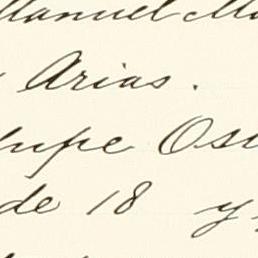 Manuel M
Arias.
upe Os
de 18 y